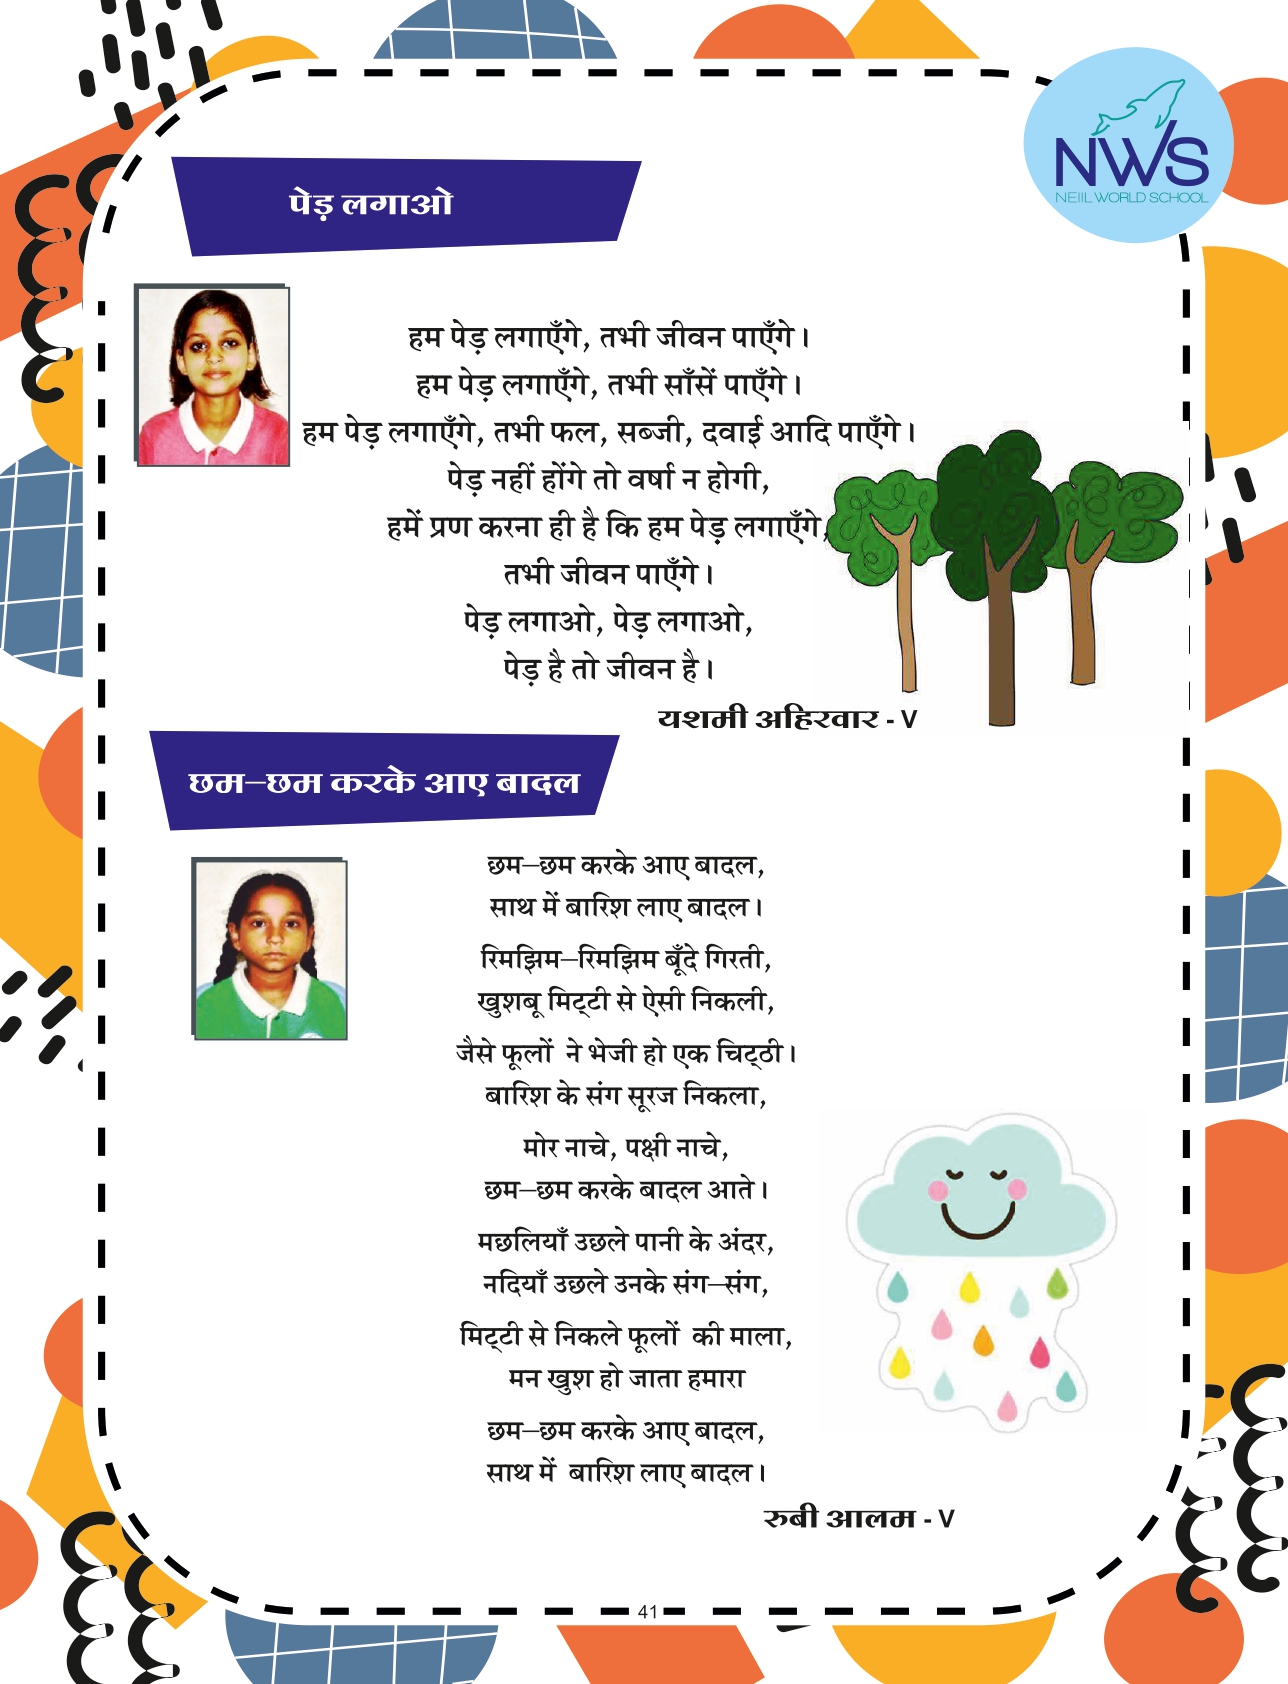 NWS
NEIIL WORLD SCHOOL
पेड़ लगाओ
हम पेड़ लगाएँगे, तभी जीवन पाएँगे।
हम पेड़ लगाएँगे, तभी साँसें पाएँगे।
हम पेड़ लगाएँगे, तभी फल, सब्जी, दवाई आदि पाएँगे।
पेड़ नहीं होंगे तो वर्षा न होगी,
हमें प्रण करना ही है कि हम पेड़ लगाएँगे,
तभी जीवन पाएँगे।
पेड़ लगाओ, पेड़ लगाओ,
पेड़ है तो जीवन है।
यशमी अहिरवार - V
छम–छम करके आए बादल
छम–छम करके आए बादल,
साथ में बारिश लाए बादल।
रिमझिम–रिमझिम बूँदे गिरती,
खुशबू मिट्टी से ऐसी निकली,
जैसे फूलों ने भेजी हो एक चिट्ठी।
बारिश के संग सूरज निकला,
मोर नाचे, पक्षी नाचे,
छम–छम करके बादल आते।
मछलियाँ उछले पानी के अंदर,
नदियाँ उछले उनके संग–संग,
मिट्टी से निकले फूलों की माला,
मन खुश हो जाता हमारा
छम–छम करके आए बादल,
साथ में बारिश लाए बादल।
रुबी आलम - V
41